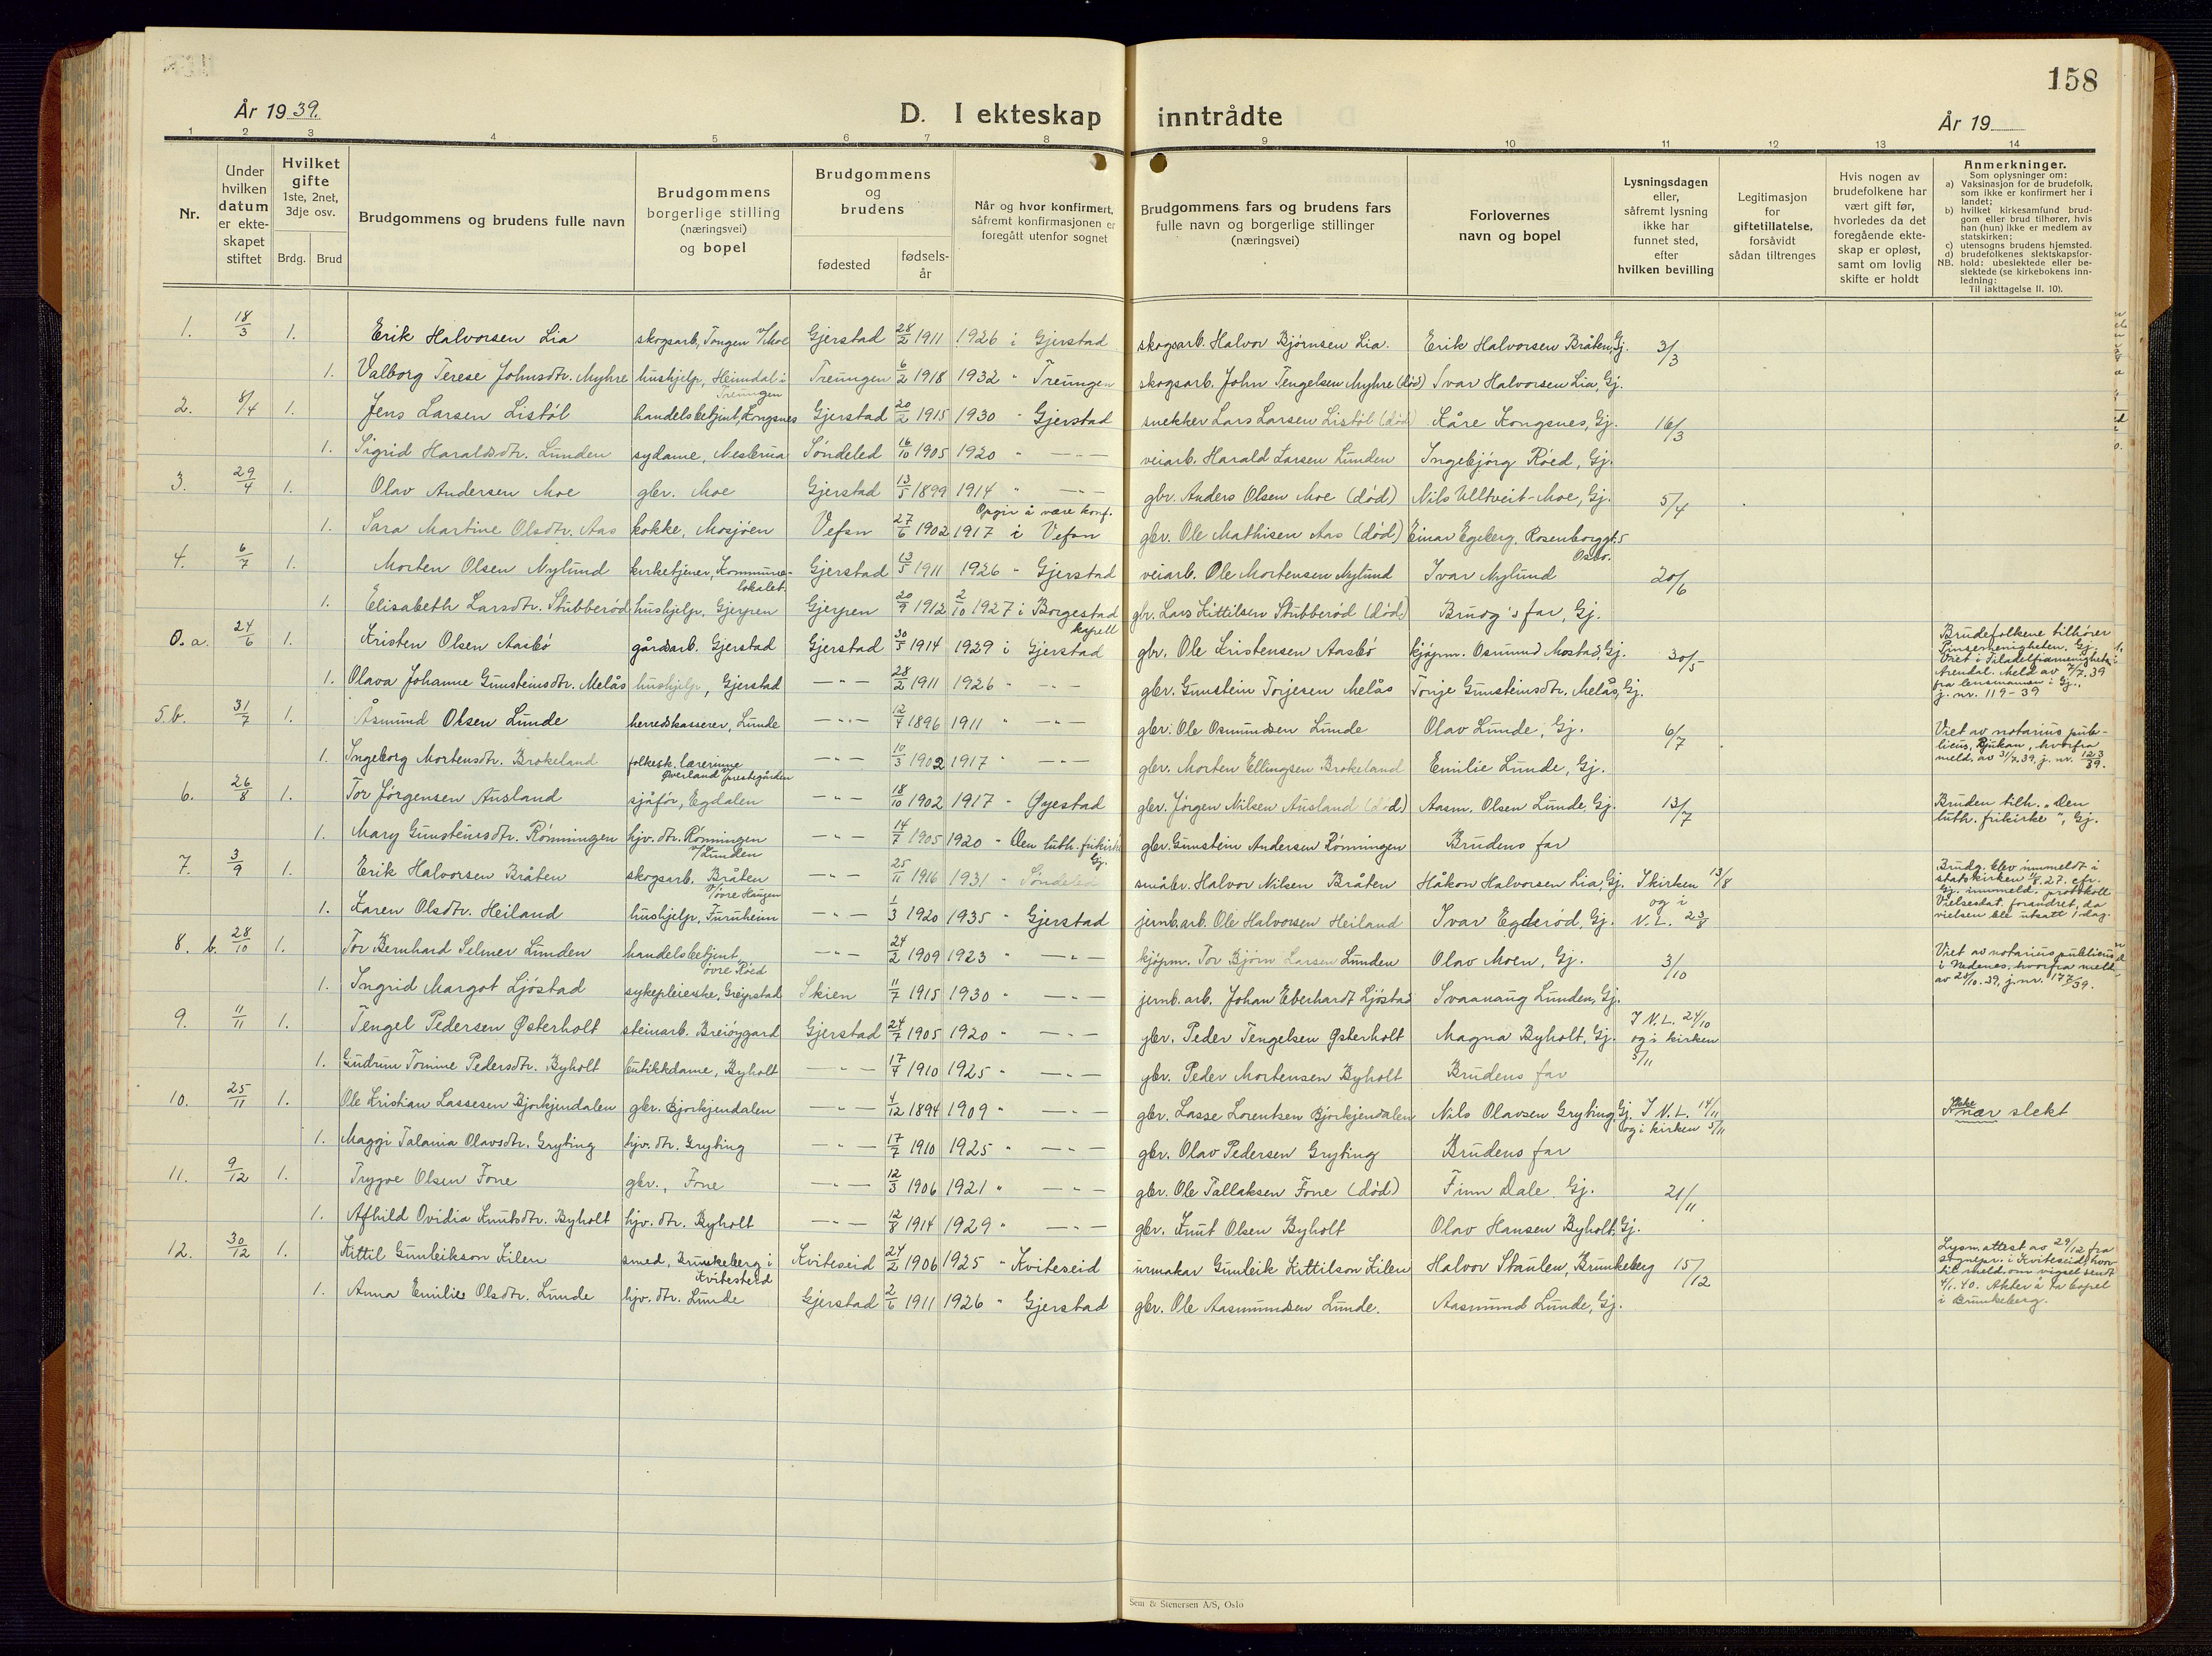 158
År 1939.
D. I ekteskap inntrådte
År 19
1 2 3 4 5 6 7 8 9 10 11 12 13 14
Nr.
Under hvilken datum er ekteskapet stiftet
Hvilket gifte 1ste, 2net, 3dje osv.
Brdg. Brud
Brudgommens og brudens fulle navn
Brudgommens borgerlige stilling (næringsvei) og bopel
Brudgommens og brudens
fødested
fødselsår
Når og hvor konfirmert, såfremt konfirmasjonen er foregått utenfor sognet
Brudgommens fars og brudens fars fulle navn og borgerlige stillinger (næringsvei)
Forlovernes navn og bopel
Lysningsdagen eller, såfremt lysning ikke har funnet sted, efter hvilken bevilling
Legitimasjon for giftetillatelse, forsåvidt sådan tiltrenges
Hvis nogen av brudefolkene har vært gift før, hvorledes da det foregående ekteskap er opløst, samt om lovlig skifte er holdt
Anmerkninger.
Som oplysninger om:
a) Vaksinasjon for de brudefolk, som ikke er konfirmert her i landet;
b) hvilket kirkesamfund brudgom eller brud tilhører, hvis han (hun) ikke er medlem av statskirken;
c) utensogns brudens hjemsted.
d) brudefolkenes slektskapsforhold: ubeslektede eller beslektede (se kirkebokens innledning:
NB.
Til iakttagelse II. 10).
1. 18/3 1. Erik Halvorsen Lia skogsarb, Tongen v/Moe Gjerstad 28/2 1911 1926 i Gjerstad skogsarb. Halvor Bjørnsen Lia. Erik Halvorsen Bråten, Gj. 3/3
1. Valborg Terese Johnsdtr. Myhre hushjelp, Heimdal i Treungen Treungen 6/2 1918 1932 " Treungen skogsarb. John Tengelsen Myhre (død) Ivar Halvorsen Lia, Gj.
2. 8/4 1. Jens Larsen Listøl handelsbetjent, Kongsnes Gjerstad 20/2 1915 1930 " Gjerstad snekker Lars Larsen Listøl (død) Kåre Kongsnes, Gj. 16/3
1. Sigrid Haraldsdtr. Lunden sydame, Nesbrua Søndeled 16/10 1905 1920 " — " — veiarb. Harald Larsen Lunden Ingebjørg Røed, Gj.
3. 29/4 1. Olav Andersen Moe gbr. Moe Gjerstad 13/5 1899 1914 " — " — gbr. Anders Olsen Moe (død) Nils Ulltveit-Moe, Gj. 5/4
1. Sara Martine Olsdtr. Aas kokke, Mosjøen Vefsn 27/6 1902 Opgir å være konf. 1917 i Vefsn gbr. Ole Mathisen Aas (død) Einar Egeberg, Rosenborggt. 5 Oslo.
4. 6/7 1. Morten Olsen Nylund kirketjener, Kommunelokalet. Gjerstad 13/5 1911 1926 " Gjerstad veiarb. Ole Mortensen Nylund Ivar Nylund 20/6
1. Elisabeth Larsdtr. Stubberød hushjelp, Gjerpen Gjerpen 20/9 1912 2/10 1927 i Borgestad kapell gbr. Lars Kittilsen Stubberød (død) Brudg's far, Gj.
O. a. 24/6 1. Kristen Olsen Aasbø gårdsarb. Gjerstad Gjerstad 30/5 1914 1929 i Gjerstad gbr. Ole Kristensen Aasbø kjøpm. Osmund Mostad, Gj. 30/5 Brudefolkene tilhører Pinsemenigheten, Gj. Viet i Filadelfiamenigheten i Arendal. Meld av 7/7. 39 fra lensmannen i Gj., j. nr. 119-39
1. Olava Johanne Gunsteinsdtr. Melås hushjelp, Gjerstad — " — 28/2 1911 1926 " — " — gbr. Gunstein Torjesen Melås Tonje Gunsteinsdtr. Melås, Gj.
5.b. 31/7 1. Åsmund Olsen Lunde herredskasserer, Lunde — " — 12/4 1896 1911 " — " — gbr. Ole Osmundsen Lunde Olav Lunde, Gj. 6/7 Viet av notarius publicus, Rjukan, hvorfra meld. av 31/7.39, j. nr. 123/39.
1. Ingeborg Mortensdtr. Brokeland folkesk. lærerinne Øverland v/prestegården — " — 10/3 1902 1917 " — " — gbr. Morten Ellingsen Brokeland Emilie Lunde, Gj.
6. 26/8 1. Tor Jørgensen Ausland sjåfør, Egdalen — " — 18/10 1902 1917 " Øyestad gbr. Jørgen Nilsen Ausland (død) Aasm. Olsen Lunde, Gj. 13/7 Bruden tilh. "Den luth. frikirke", Gj.
1. Mary Gunsteinsdtr. Rønningen hjv. dtr. Rønningen v/Lunden — " — 14/7 1905 1920 " Den luth. frikirke Gj. gbr. Gunstein Andersen Rønningen Brudens far
7. 3/9 1. Erik Halvorsen Bråten skogsarb. Bråten v/øvre Haugen — " — 25/11 1916 1931 " Søndeled småbr. Halvor Nilsen Bråten Håkon Halvorsen Lia, Gj. I kirken 13/8 og i Brudg. blev innmeldt i statskirken 1/8.27. cfr. Gj. innmeld. protokoll Vielsesdat. forandret, da vielsen ble utsatt 1 dag.
1. Karen Olsdtr. Heiland hushjelp, Furuheim — " — 1/3 1920 1935 " Gjerstad jernb.arb. Ole Halvorsen Heiland Ivar Egderød, Gj. N. L. 23/8
8. b. 28/10 1. Tor Bernhard Selmer Lunden handelsbetjent, øvre Røed — " — 24/2 1909 1923 " — " — kjøpm. Tor Bjørn Larsen Lunden Olav Moen, Gj. 3/10 Viet av notarius publicus i Nedenes, hvorfra meld. av 28/10. 39, j. nr. 177/39.
1. Ingrid Margot Ljøstad sykepleierske, Gjerstad Skien 11/7 1915 1930 " — " — jernb. arb. Johan Eberhardt Ljøstad Svaanaug Lunden, Gj.
9. 11/11 1. Tengel Pedersen Østerholt steinarb. Breiøygard Gjerstad 24/7 1905 1920 " — " — gbr. Peder Tengelsen Østerholt Magna Byholt, Gj. I N. L. 24/10 og i kirken 5/11
1. Gudrun Tomine Pedersdtr. Byholt butikkdame, Byholt — " — 17/7 1910 1925 " — " — gbr. Peder Mortensen Byholt Brudens far
10. 25/11 1. Ole Kristian Lassesen Bjorkjendalen gbr. Bjorkjendalen — " — 4/12 1894 1909 " — " — gbr. Lasse Lorentsen Bjorkjendalen Nils Olavsen Gryting, Gj. I N. L. 14/11 og i kirken 5/11 Ikke nær slekt
1. Maggi Talania Olavsdtr. Gryting hjv. dtr. Gryting — " — 17/7 1910 1925 " — " — gbr. Olav Pedersen Gryting Brudens far
11. 9/12 1. Trygve Olsen Fone gbr., Fone — " — 12/3 1906 1921 " — " — gbr. Ole Tallaksen Fone (død) Finn Dale Gj. 21/11
1. Afhild Ovidia Knutsdtr. Byholt hjv. dtr. Byholt — " — 12/8 1914 1929 " — " — gbr. Knut Olsen Byholt Olav Hansen Byholt, Gj.
12. 30/12 1. Kittil Gunleikson Kilen smed, Brunkeberg i Kviteseid Kviteseid 24/2 1906 1925 " Kviteseid urmakar Gunleik Kittilson Kilen Halvor Staulen, Brunkeberg 15/12 Lysn. attest av 29/12 fra sognepr. i Kviteseid, hvortil meld. om vigsel sendt 4/1. 40. Akter å ta bopel i Brunkeberg.
1. Anna Emilie Olsdtr. Lunde hjv. dtr. Lunde Gjerstad 2/6 1911 1926 " Gjerstad gbr. Ole Aasmundsen Lunde. Aasmund Lunde, Gj.
Sem & Stenersen A/S, Oslo